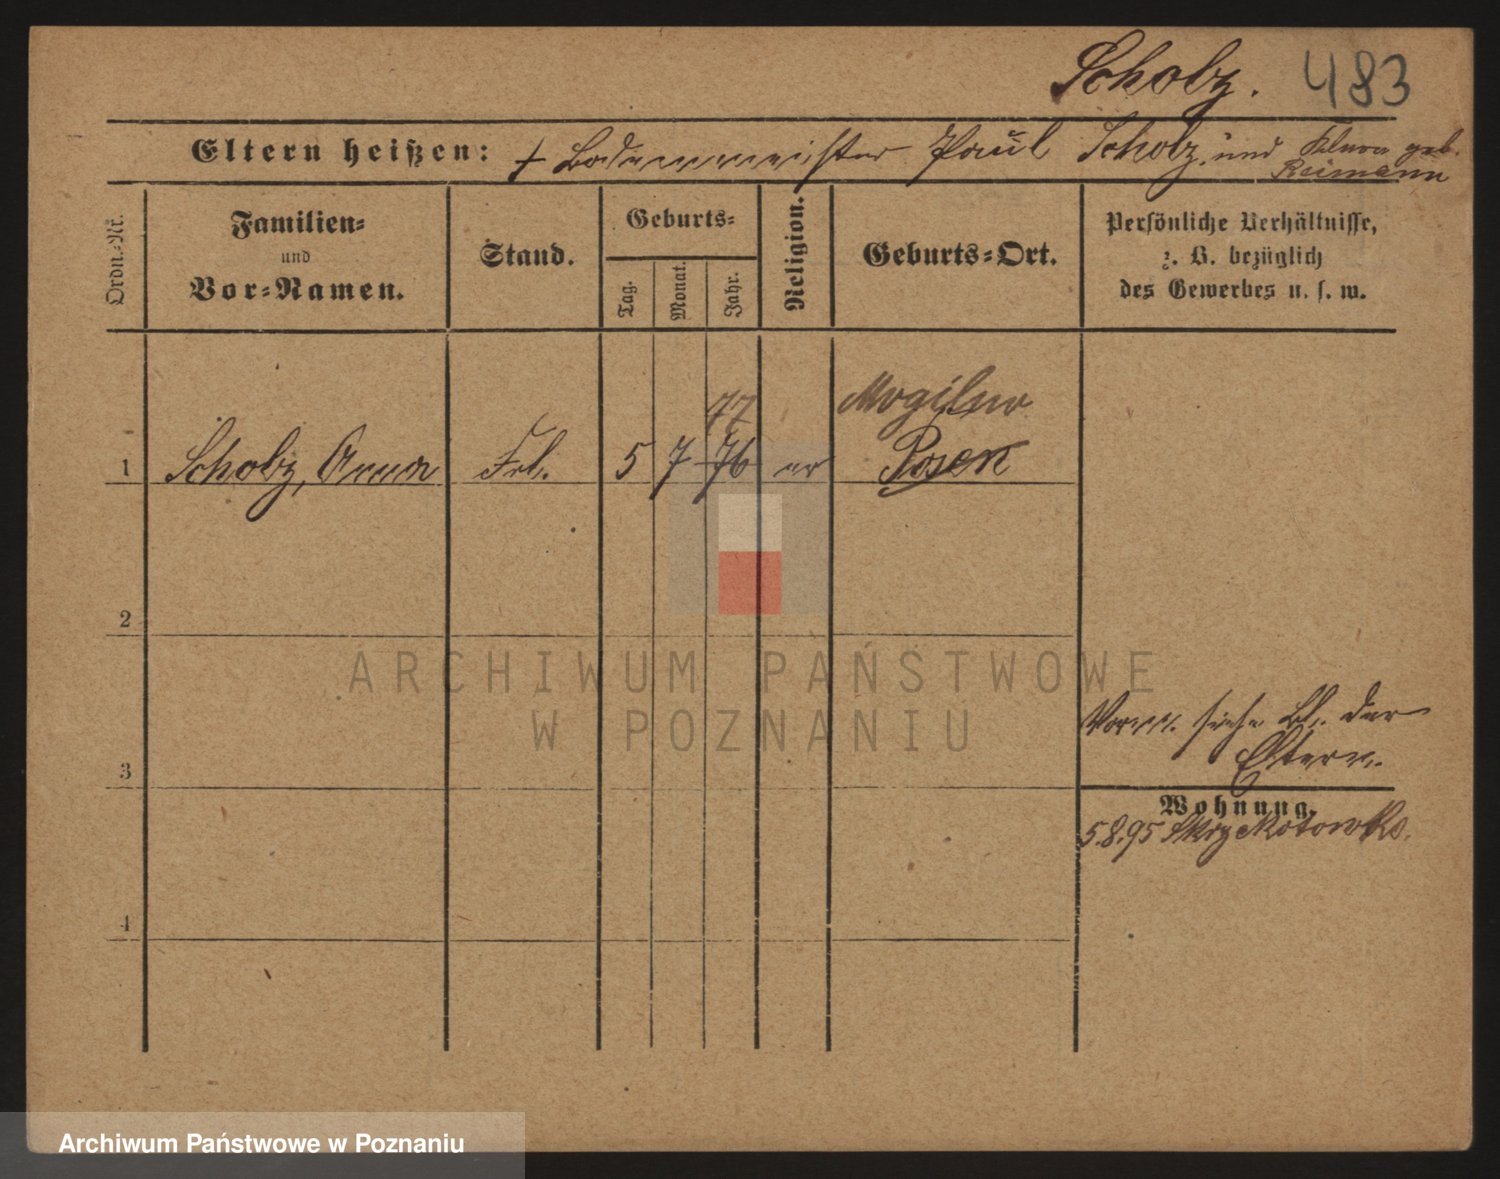 Scholz. 483
Eltern heißen: † Bodenmeister Paul Scholz, und Klara geb.
Reimann
Ordn.-Nr.
Familien-
und
Vor-Namen.
Stand.
Geburts-
Tag.
Monat.
Jahr.
Religion.
Geburts-Ort.
Persönliche Verhältnisse,
z. B. bezüglich
des Gewerbes u. s. w.
77 Mogilno
1 Scholz, Anna Frl. 5 7 76 ev Posen
2
ARCHIWUM PAŃSTWOWE
W POZNANIU
Vorm. siehe Bl. der
Eltern.
3
Wohnung.
5.8.95
4
Archiwum Państwowe w Poznaniu